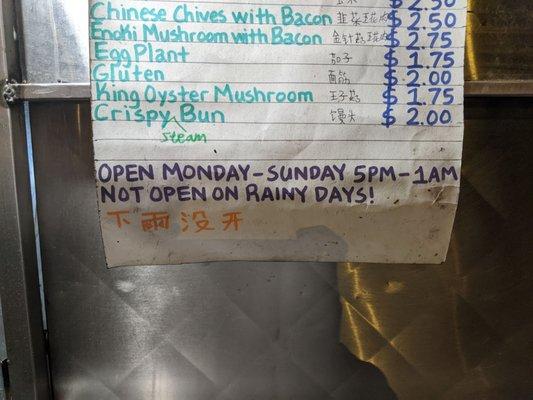 $ 2.50
Chinese Chives with Bacon 韭菜五花肉 $ 2.50
Enoki Mushroom with Bacon 金针菇五花肉 $ 2.75
Egg Plant 茄子 $ 1.75
Gluten 面筋 $ 2.00
King Oyster Mushroom 王子菇 $ 1.75
Crispy Bun 馒头 $ 2.00
steam
OPEN MONDAY - SUNDAY 5PM - 1AM
NOT OPEN ON RAINY DAYS!
下雨没开